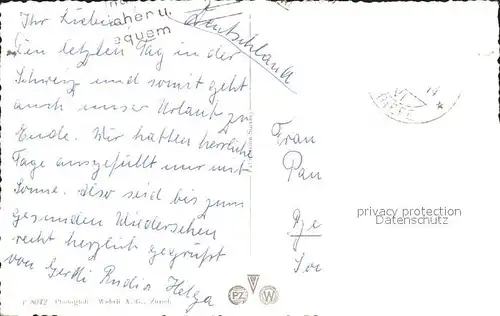 Ihr Lieben
aher u.
equem
Deutschland
Den letzten Tag in der
Schweiz und somit geht
auch unser Urlaub zu
Ende. Wir hatten herrliche
Tage ausgefüllt nur mit
Sonne. Also seid bis zum
gesunden Wiedersehen
recht herzlich gegrüßt
von Gerdi Rudi Helga
Frau
Pau
privacy protection
Datenschutz
P 8042 Photogloß - Wehrli A. G., Zürich
PZ W